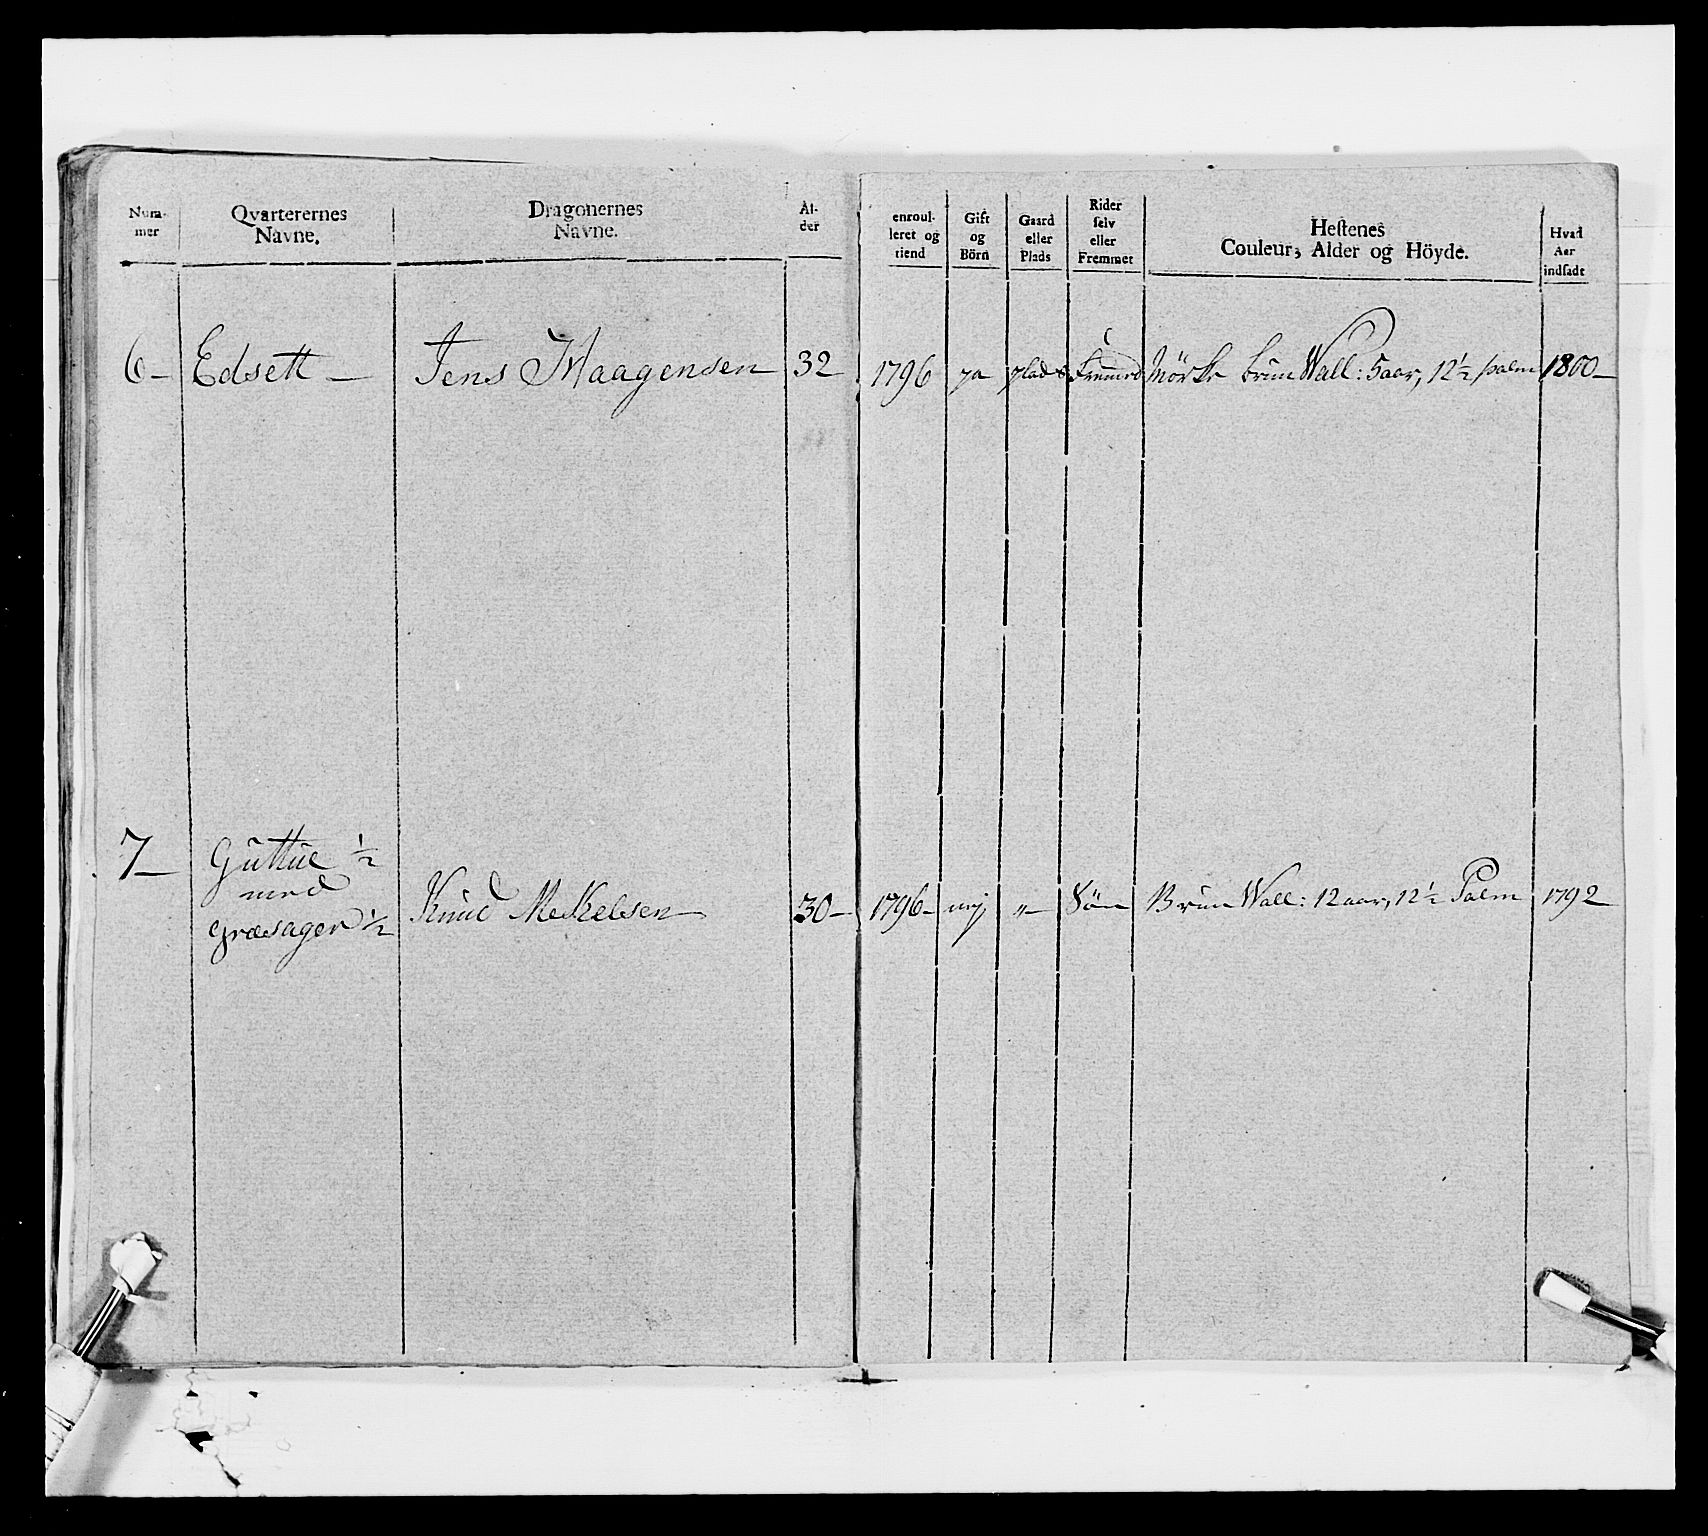 Num-
mer
Qvarterernes
Navne.
Dragonernes
Navne.
Al-
der
enroul-
leret og
tiend
Gift
og
Börn
Gaard
eller
Plads
Rider
selv
eller
Fremmet
Hestenes
Couleur, Alder og Höyde.
Hvad
Aar
indsadt
6 - Edsett - Jens Maagensen 32 1796 ja plads fremed Mörk brun Wall: 5 aar, 12 ½ palm 1800 -
7 - Guttue ½
med
Græsager ½ Knud Mekelsen - 30 - 1796 - nej „ - Sön Brun Wall: 12 aar, 12 ½ Palm 1792